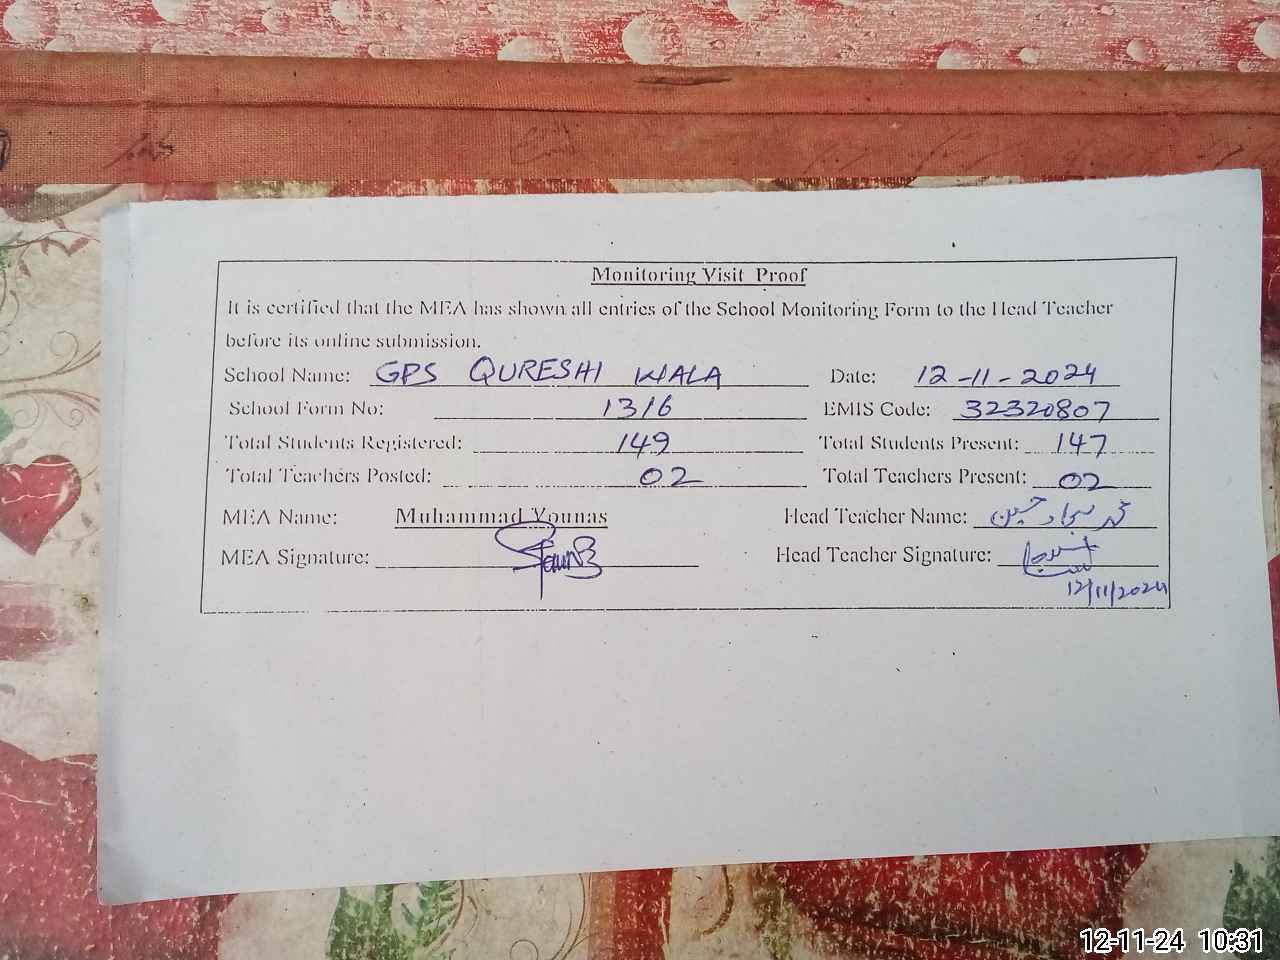 Monitoring Visit Proof
It is certified that the MEA has shown all entries of the School Monitoring Form to the Head Teacher
before its online submission.
School Name: GPS QURESHI WALA Date: 12-11-2024
School Form No: 1316 EMIS Code: 32320807
Total Students Registered: 149 Total Students Present: 147
Total Teachers Posted: 02 Total Teachers Present: 02
MEA Name: Muhammad Younas Head Teacher Name: محمد سجاد حسین
MEA Signature: Head Teacher Signature:
12/11/2024
12-11-24 10:31